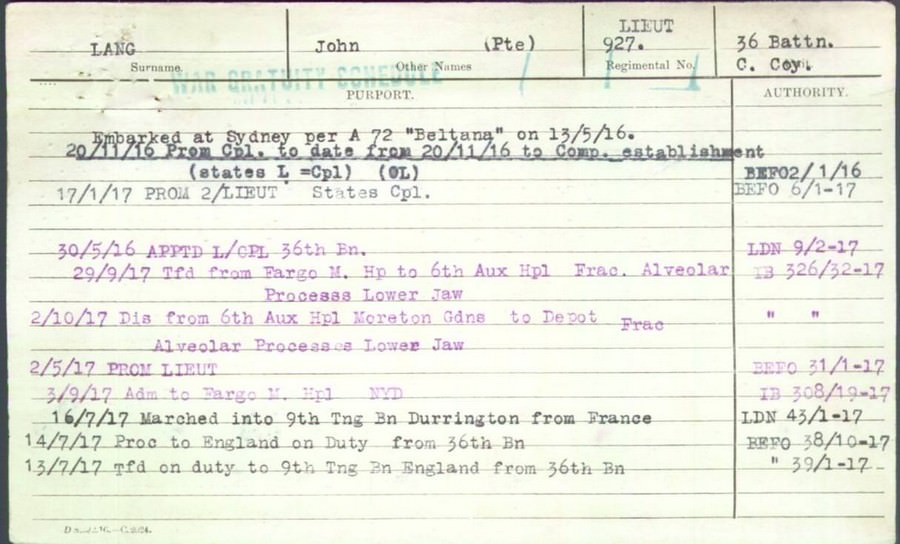 LIEUT
LANG John (Pte) 927. 36 Battn.
Surname. Other Names Regimental No. C. Coy.
WAR GRATUITY SCHEDULE
PURPORT. AUTHORITY.
Embarked at Sydney per A 72 "Beltana" on 13/5/16.
20/11/16 Prom Cpl. to date from 20/11/16 to Comp. establishment
(states L =Cpl) (OL) BEFO2/ 1/16
17/1/17 PROM 2/LIEUT States Cpl. BEFO 6/1-17
30/5/16 APPTD L/CPL 36th Bn. LDN 9/2-17
29/9/17 Tfd from Fargo M. Hp to 6th Aux Hpl Frac. Alveolar IB 326/32-17
Processs Lower Jaw
2/10/17 Dis from 6th Aux Hpl Moreton Gdns to Depot Frac " "
Alveolar Processes Lower Jaw
2/5/17 PROM LIEUT BEFO 31/1-17
3/9/17 Adm to Fargo M. Hpl NYD IB 308/19-17
16/7/17 Marched into 9th Tng Bn Durrington from France LDN 43/1-17
14/7/17 Proc to England on Duty from 36th Bn BEFO 38/10-17
13/7/17 Tfd on duty to 9th Tng Bn England from 36th Bn " 39/1-17